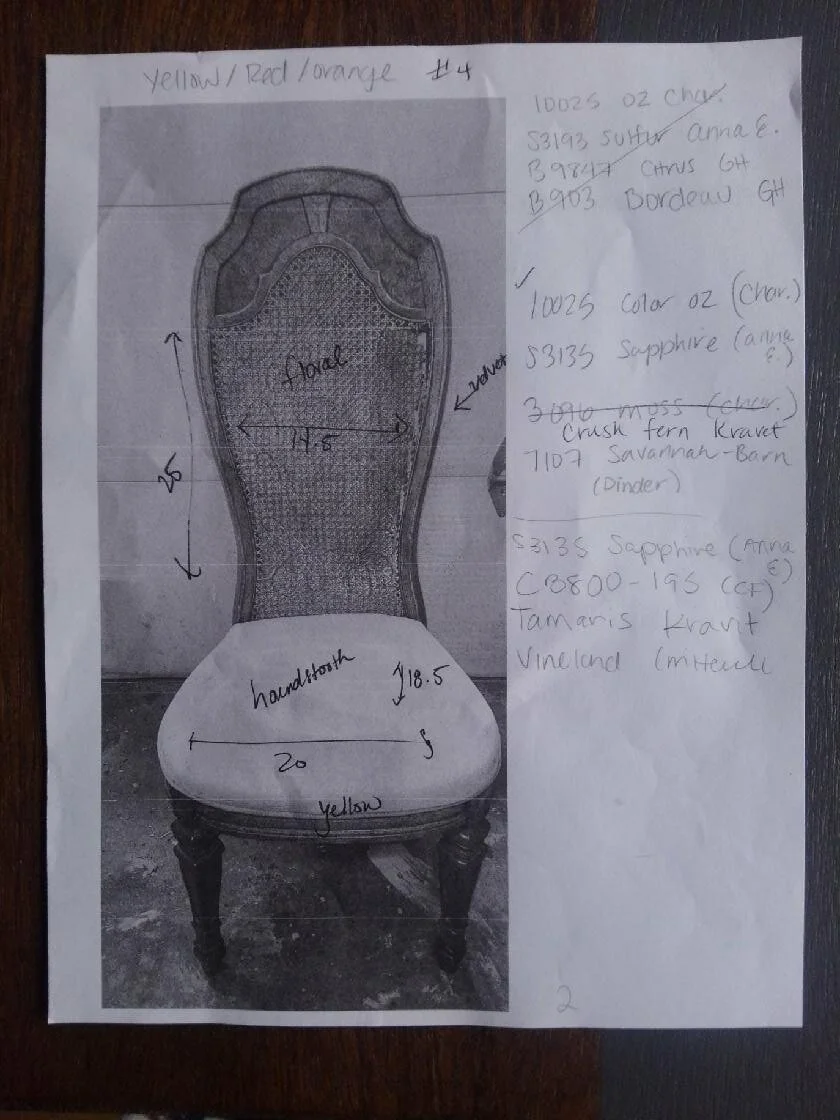 Yellow/Red/orange #4
10025 OZ Char.
S3193 Sulfur Anna E.
B9847 Citrus GH
B903 Bordeau GH
10025 Color OZ (Char.)
S3135 Sapphire (anna E.)
3096 moss (char.)
Crush fern Kravet
7107 Savannah-Barn
(Dinder)
S3135 Sapphire (Anna E)
CB800-195 (CF)
Tamaris Kravit
Vineland
floral
velvet
14.5
25
houndstooth
18.5
20
yellow
2